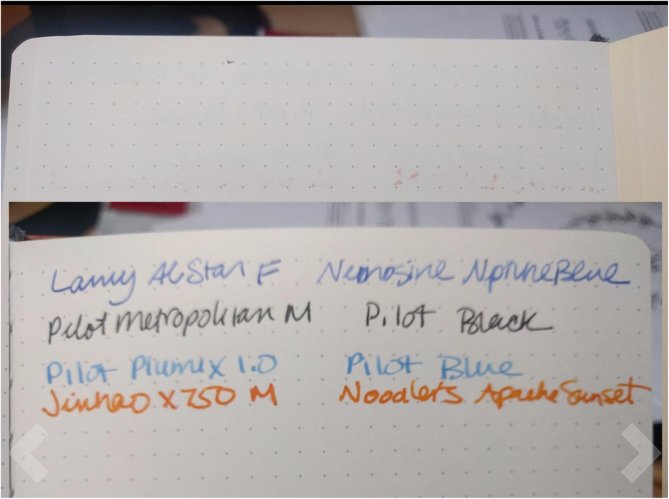 Lamy AlStar F Nemosine Neptune Blue
Pilot Metropolitan M Pilot Black
Pilot Plumix 1.0 Pilot Blue
Jinhao X750 M Noodler's Apache Sunset